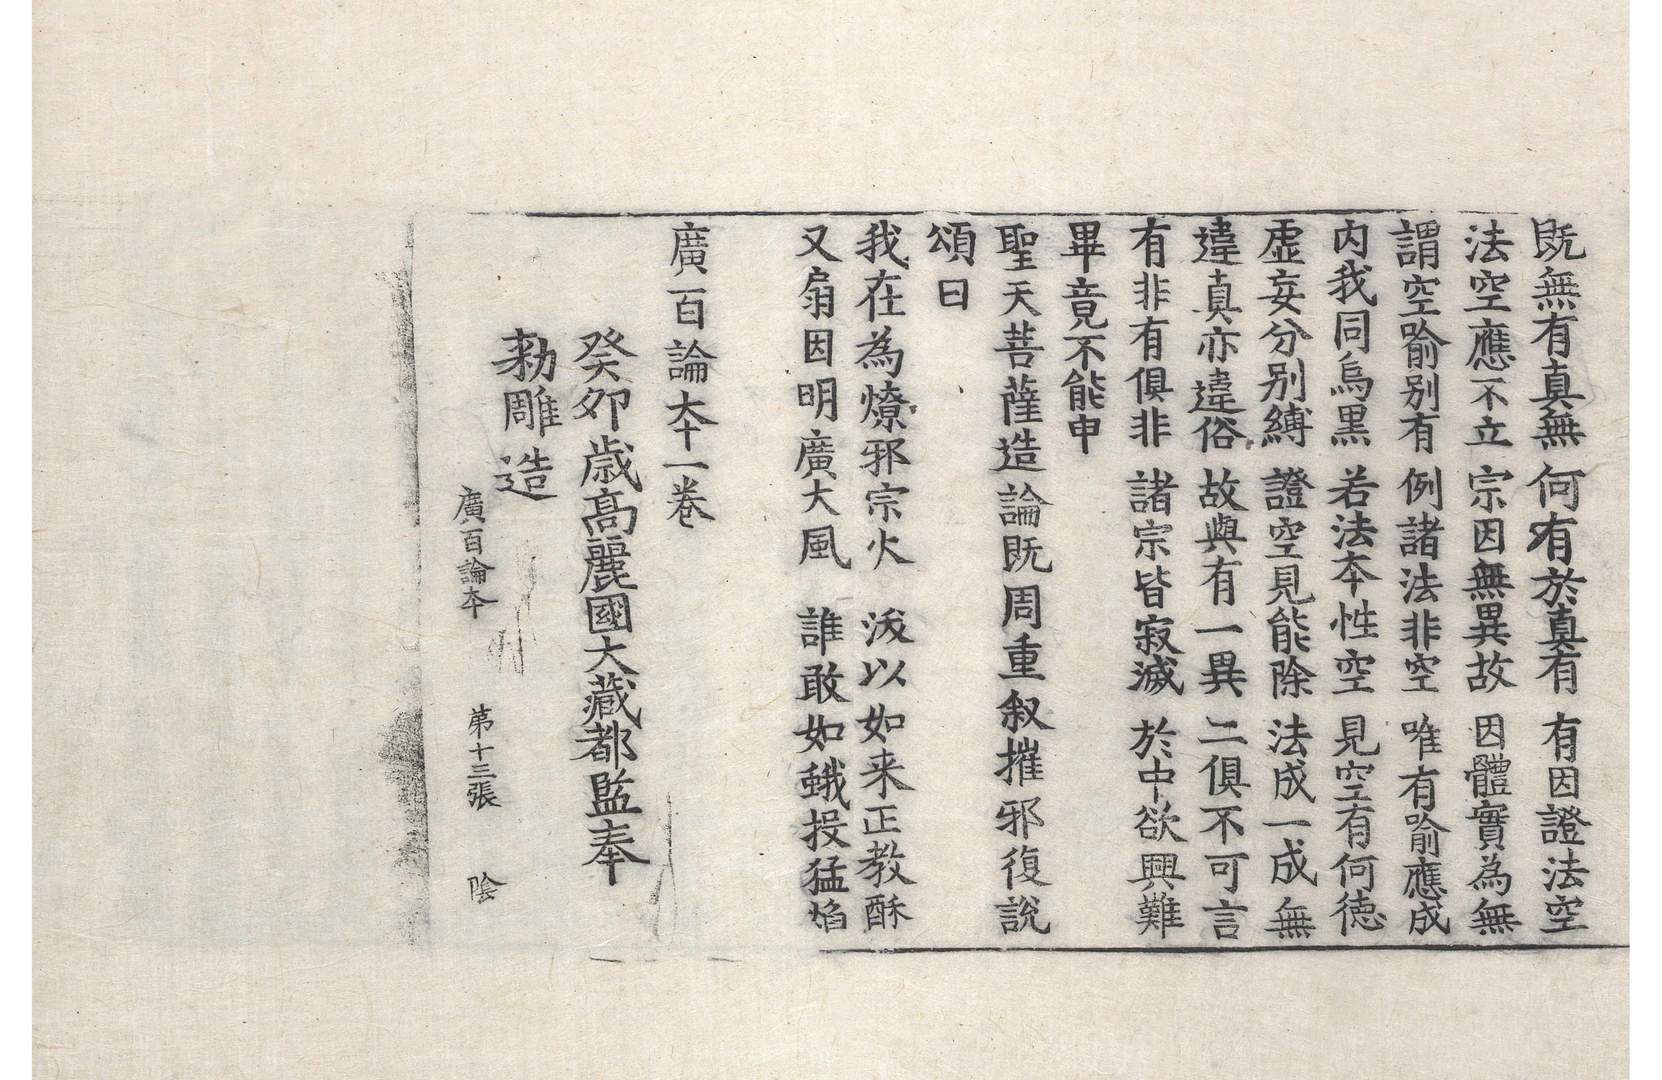 既無有真無　何有於真有　有因證法空
法空應不立　宗因無異故　因體實為無
謂空喻别有　例諸法非空　唯有喻應成
内我同烏黑　若法夲性空　見空有何德
虛妄分别縛　證空見能除　法成一成無
違真亦違俗　故與有一異　二俱不可言
有非有俱非　諸宗皆寂滅　於中欲興難
畢竟不能申
聖天菩薩造論既周重叙摧邪復說
頌曰
我在為燎邪宗火　沷以如来正教酥
又扇因明廣大風　誰敢如蛾投猛焰
廣百論夲一卷
癸卯歲高麗國大藏都監奉
勑雕造
廣百論夲　第十三張　隂